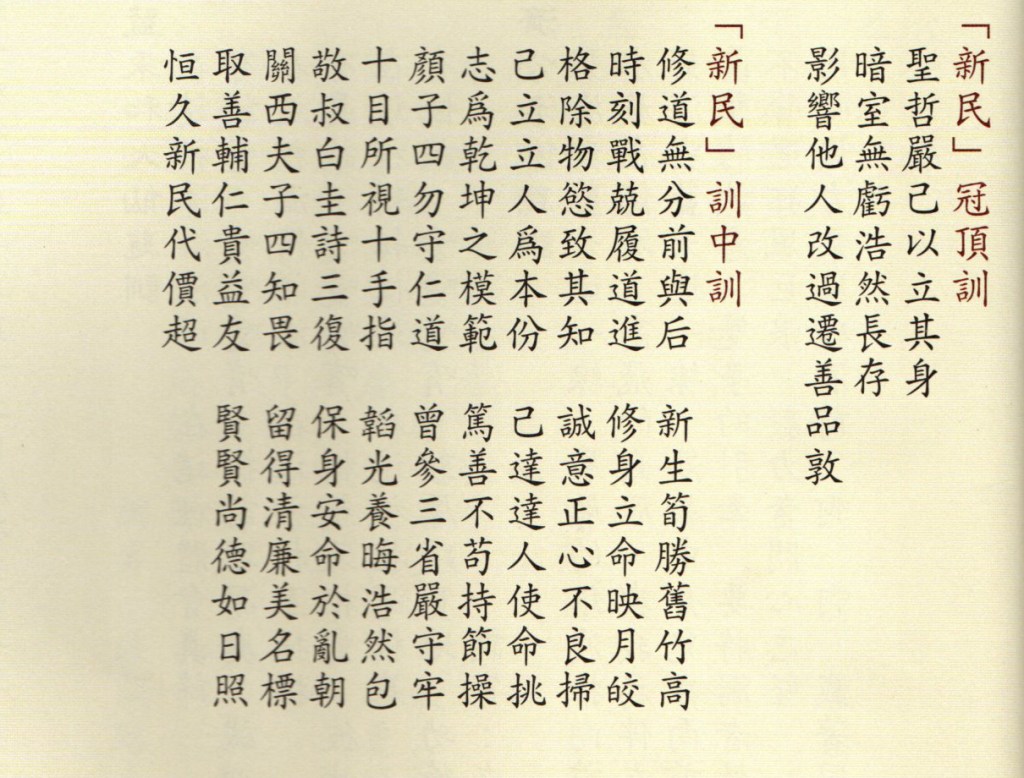 「新民」冠頂訓
聖哲嚴己以立其身
暗室無虧浩然長存
影響他人改過遷善品敦
「新民」訓中訓
修道無分前與后　新生筍勝舊竹高
時刻戰兢履道進　修身立命映月皎
格除物慾致其知　誠意正心不良掃
己立立人爲本份　己達達人使命挑
志爲乾坤之模範　篤善不苟持節操
顏子四勿守仁道　曾參三省嚴守牢
十目所視十手指　韜光養晦浩然包
敬叔白圭詩三復　保身安命於亂朝
關西夫子四知畏　留得清廉美名標
取善輔仁貴益友　賢賢尚德如日照
恒久新民代價超